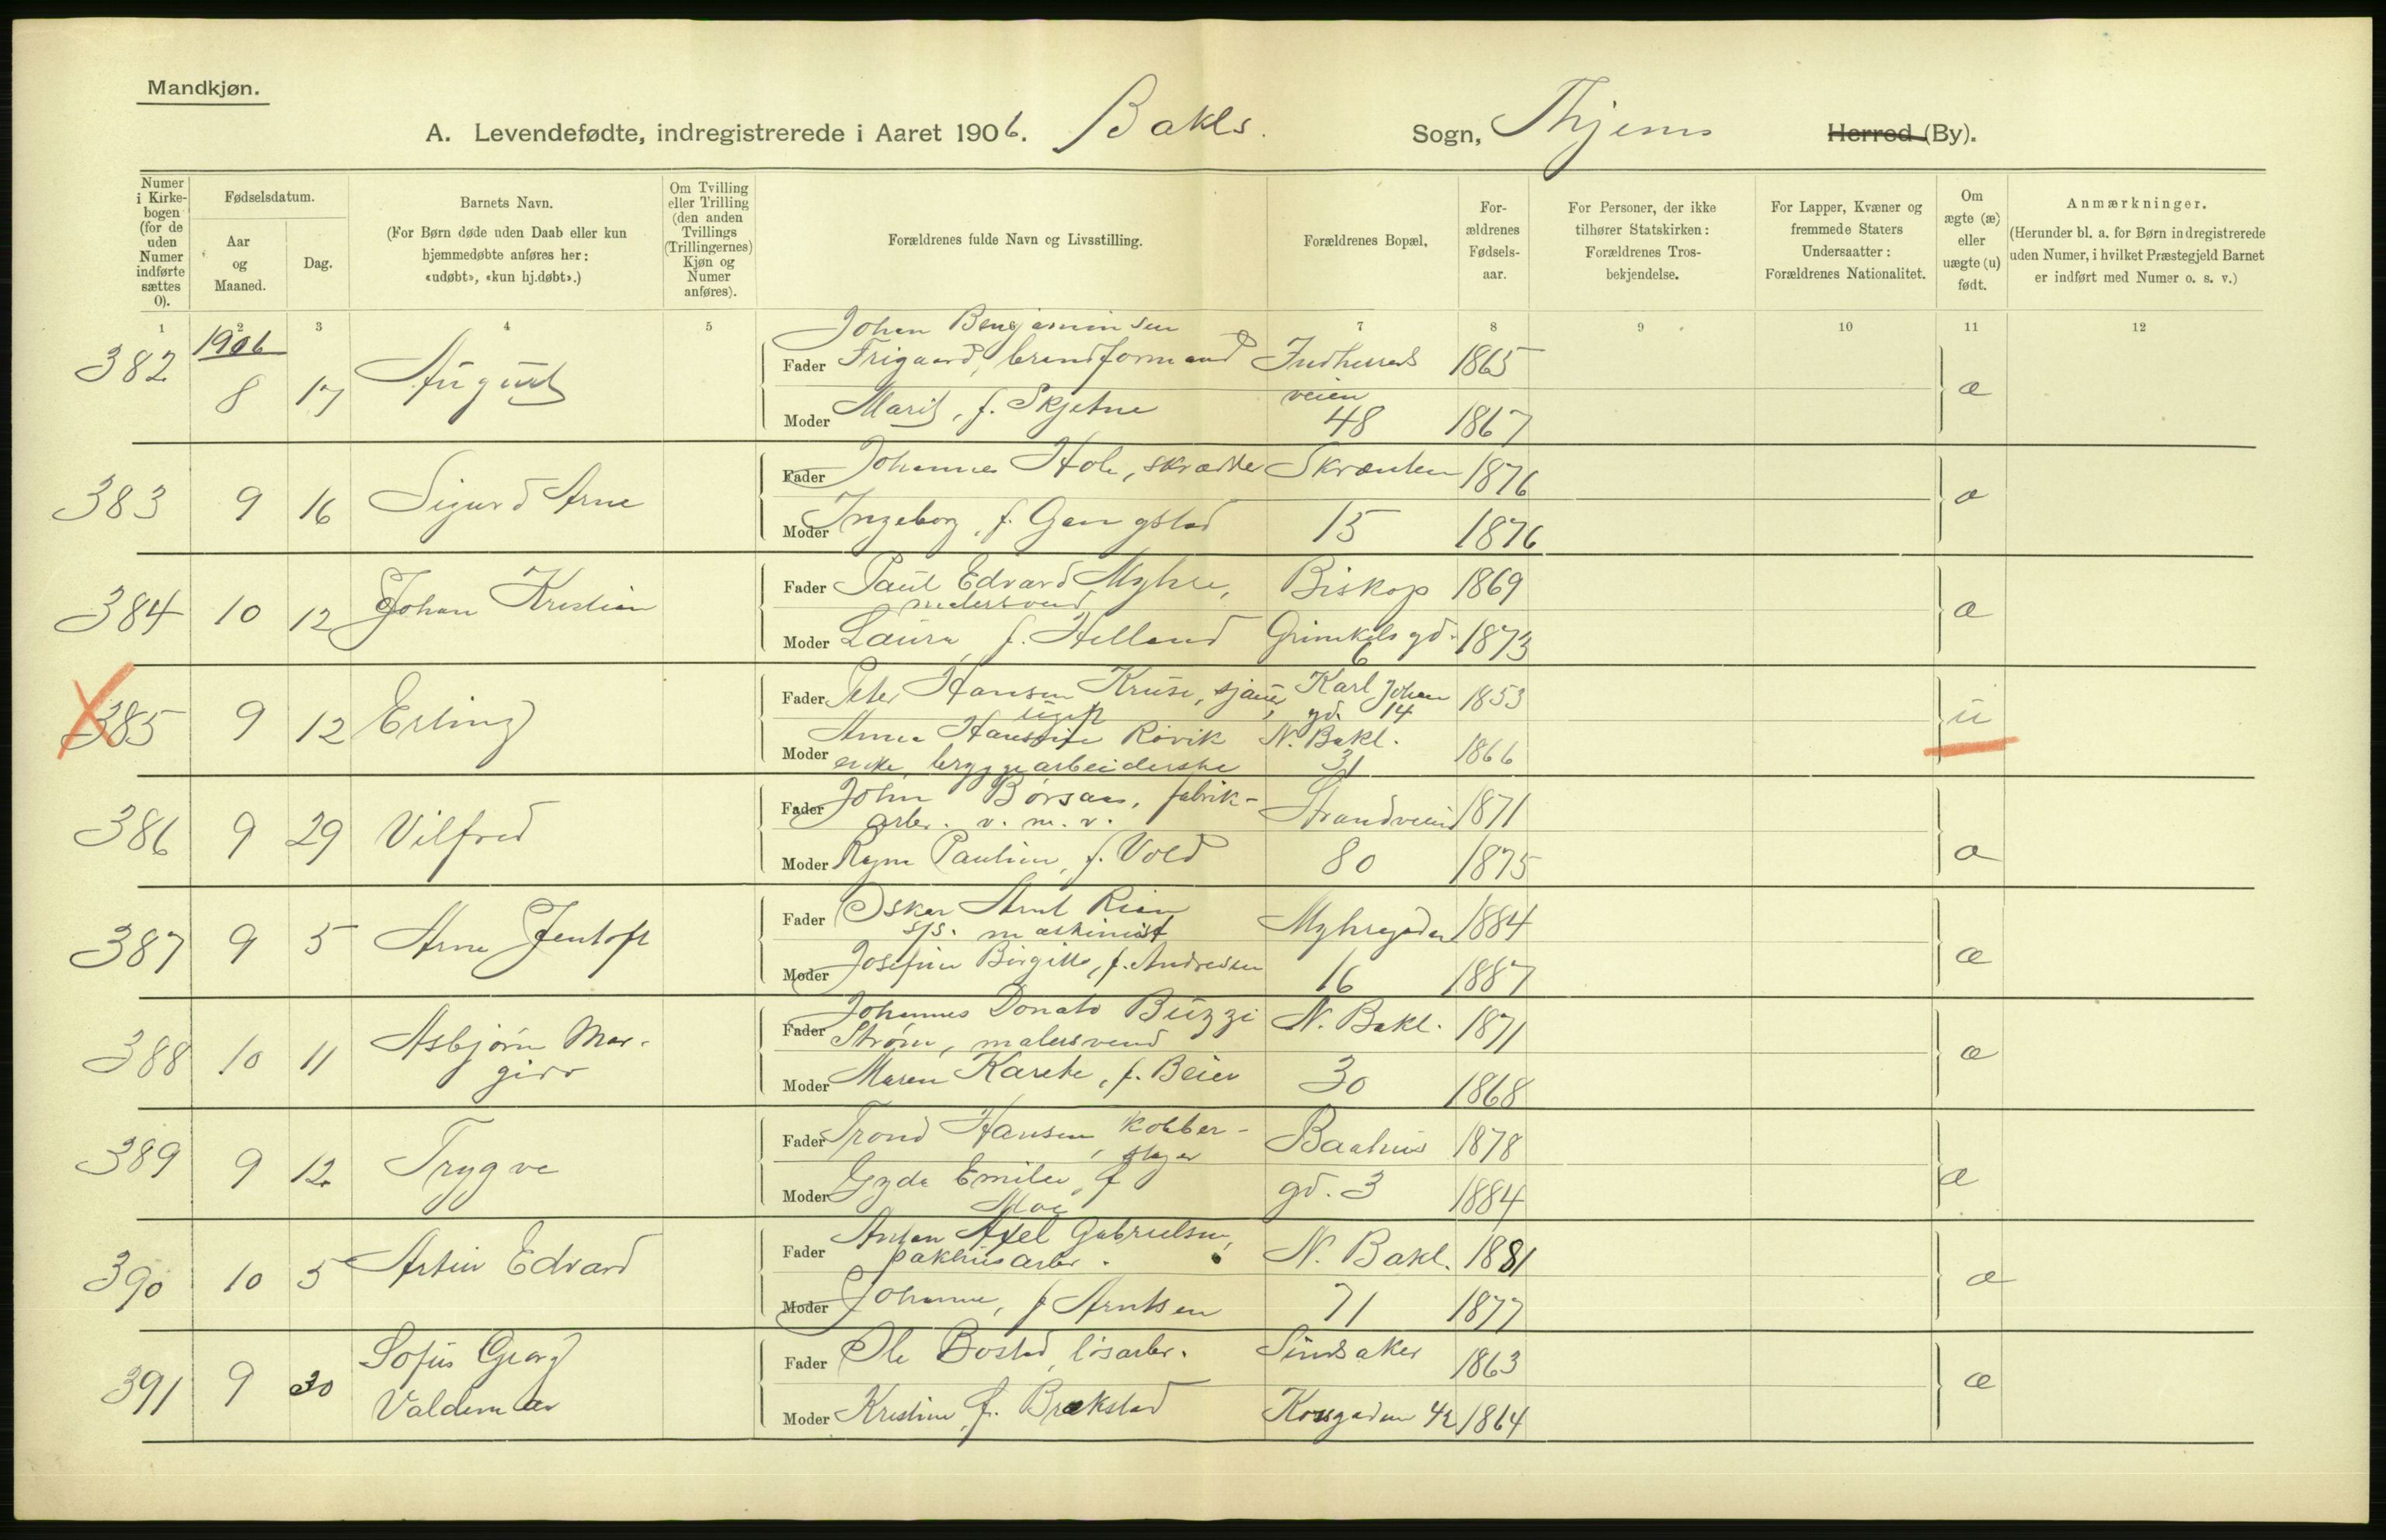 Mandkjøn.
A. Levendefødte, indregistrerede i Aaret 1906. Bakls. Sogn, Thjems Herred (By).
Numer i Kirkebogen (for de uden Numer indførte sættes 0).
Fødselsdatum.
Aar og Maaned.
Dag.
Barnets Navn.
(For Børn døde uden Daab eller kun hjemmedøbte anføres her: «udøbt», «kun hj.døbt».)
Om Tvilling eller Trilling (den anden Tvillings (Trillingernes) Kjøn og Numer anføres).
Forældrenes fulde Navn og Livsstilling.
Forældrenes Bopæl,
Forældrenes Fødselsaar.
For Personer, der ikke tilhører Statskirken: Forældrenes Trosbekjendelse.
For Lapper, Kvæner og fremmede Staters Undersaatter: Forældrenes Nationalitet.
Om ægte (æ) eller uægte (u) født.
Anmærkninger.
(Herunder bl. a. for Børn indregistrerede uden Numer, i hvilket Præstegjeld Barnet er indført med Numer o. s. v.)
1 2 3 4 5 7 8 9 10 11 12
1906
382 8 17 August
Johan Bengjaminsen
Fader Frigaard, brandformand Indherreds 1865
veien
Moder Marit, f. Skjetne 48 1867
æ
383 9 16 Sigurd Arne
Fader Johannes Hole, skrædder Skrænten 1876
Moder Ingeborg, f. Gangstad 15 1876
æ
384 10 12 Johan Kristian
Fader Paul Edvard Myhre, Biskop 1869
malersvend
Moder Laura, f. Helland Grimkels gd. 1873
6
æ
385 9 12 Erling
Fader Peter Hansen Kruse, sjauer, Karl Johan 1853
ugift gd. 14
Moder Anna Hansine Rövik N. Bakl. 1866
enke, bryggearbeiderske 31
u
386 9 29 Vilfred
Fader John Börsaas, fabrik-
arbr. v. m. v. Strandveien 1871
Moder Ragna Pauline, f. Vold 80 1875
æ
387 9 5 Arne Jentoft
Fader Oskar Arnt Rian
sjs. maskinist Myhregaden 1884
Moder Josefine Birgitte, f. Andresen 16 1887
æ
388 10 11 Asbjørn Mar-
gido
Fader Johannes Donato Buzzi N. Bakl. 1871
Strøm, malersvend
Moder Maren Karete, f. Beier 30 1868
æ
389 9 12 Trygve
Fader Trond Hansen, kobber- Baahus 1878
slager
Moder Gyda Emilie, f. gd. 3 1884
Moe
æ
390 10 5 Artur Edvard
Fader Anton Axel Gabrielsen, N. Bakl. 1881
pakhusarbr.
Moder Johanne, f. Arntsen 71 1877
æ
391 9 30 Sofus Georg
Valdemar
Fader Ole Bostad, løsarbr. Sindsaker 1863
Moder Kristine, f. Brækstad Korsgaden 42 1864
æ